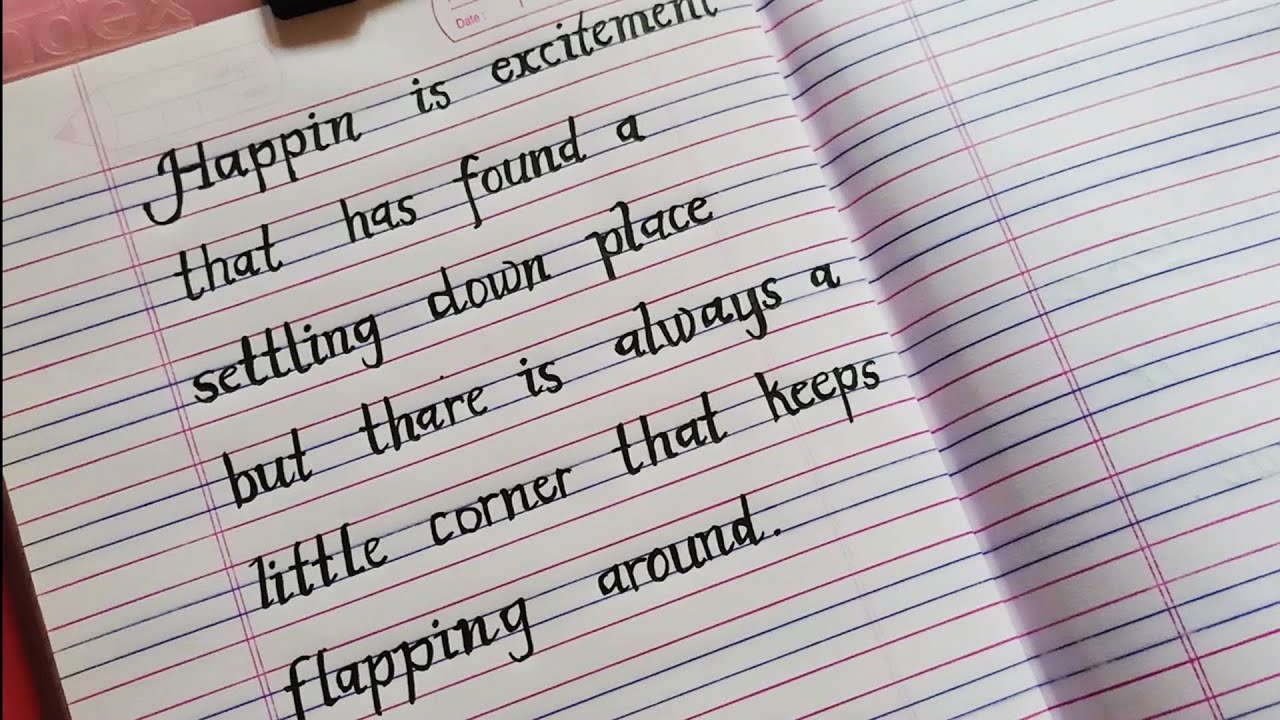 ndex
Date :
Happin is excitement
that has found a
settling down place
but thare is always a
little corner that keeps
flapping around.